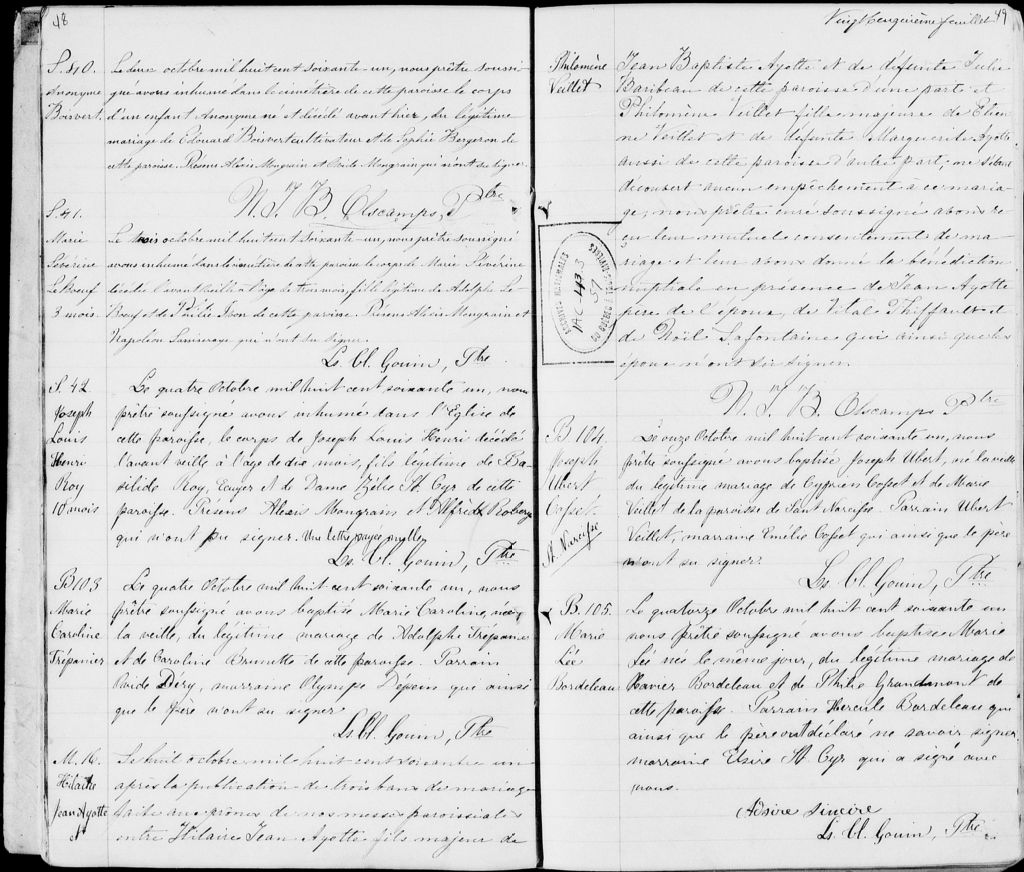 48
S. 40.
Anonyme
Boisvert.
Le deux octobre mil huit cent soixante-un, nous prêtre soussi-
gné avons inhumé dans le cimetière de cette paroisse le corps
d'un enfant Anonyme né et décédé avant hier, du légitime
mariage de Edouard Boisvert cultivateur et de Sophie Bergeron de
cette paroisse. Présens Alexis Mongrain et Mongrain qui n'ont su signer.
N. T. B. Olscamps, Ptre
S. 41.
Marie
Séverine
Lebœuf
3 mois.
Le trois octobre mil huit cent soixante-un, nous prêtre soussigné
avons inhumé dans le cimetière de cette paroisse le corps de Marie Séverine
décédée l'avant veille à l'âge de trois mois, fille légitime de Adolphe Le
Bœuf et de de cette paroisse. Présens Alexis Mongrain et
Napoleon qui n'ont su signer.
Ls. Cl. Gouin, Ptre
S. 42
Joseph
Louis
Henri
Roy
10 mois
Le quatre Octobre mil huit cent soixante un, nous
prêtre soussigné avons inhumé dans l'Eglise de
cette paroisse, le corps de Joseph Louis Henri décédé
l'avant veille à l'age de dix mois, fils légitime de Ba-
silide Roy, Ecuyer et de Dame Zélie St. Cyr de cette
paroisse. Présens Alexis Mongrain et Alfred Roberge
qui n'ont pu signer. Une lettre payee nulle
Ls. Cl. Gouin, Ptre
B 103
Marie
Caroline
Trépanier
Le quatre Octobre mil huit cent soixante un, nous
prêtre soussigné avons baptisé Marie Caroline, née
la veille, du légitime mariage de Adolphe Trépanier
et de Caroline Brunette de cette paroisse. Parrain
Déry, marraine Olympe Dépein qui ainsi
que le père n'ont su signer
Ls. Cl. Gouin, Ptre
M. 16.
Hilaire
Jean Ayotte
&
Le huit octobre mil huit cent soixante un
après la publication de trois bans de mariage
faite aux prônes de nos messes paroissiales
entre Hilaire Jean Ayotte fils majeur de
Vingt cinquième feuillet 49
Philomène
Veillet
Jean Baptiste Ayotte et de defunte Julie
Baribeau de cette paroisse d'une part et
Philomène Veillet fille majeure de Etien
ne Veillet et de defunte Marguerite Ayotte
aussi de cette paroisse d'autre part; ne s'étant
découvert aucun empêchement à ce maria-
ge; nous prêtre curé soussigné avons re
çu leur mutuel consentement de ma-
riage et leur avons donné la bénédiction
nuptiale en présence de Jean Ayotte
père de l'époux, de Vital Thiffault et
de Noël Lafontaine qui ainsi que les
époux n'ont su signer.
N. T. B. Olscamps Ptre
B 104.
Joseph
Ubert
Cosset.
St. Narcisse
Le onze Octobre mil huit cent soixante un, nous
prêtre soussigné avons baptisé Joseph Ubert, né la veille
du légitime mariage de Cyprien Cosset et de Marie
Veillet de la paroisse de Saint Narcisse. Parrain Ubert
Veillet, marraine Emélie Cosset qui ainsi que le père
n'ont su signer.
Ls. Cl. Gouin, Ptre
B. 105.
Marie
Léa
Bordeleau
Le quatorze Octobre mil huit cent soixante un
nous prêtre soussigné avons baptisé Marie
Léa née le même jour, du légitime mariage de
Xavier Bordeleau et de Philie Grandmont de
cette paroisse. Parrain Hercule Bordeleau qui
ainsi que le père ont déclaré ne savoir signer
marraine St. Cyr qui a signé avec
nous.
Ls. Cl. Gouin, Ptre